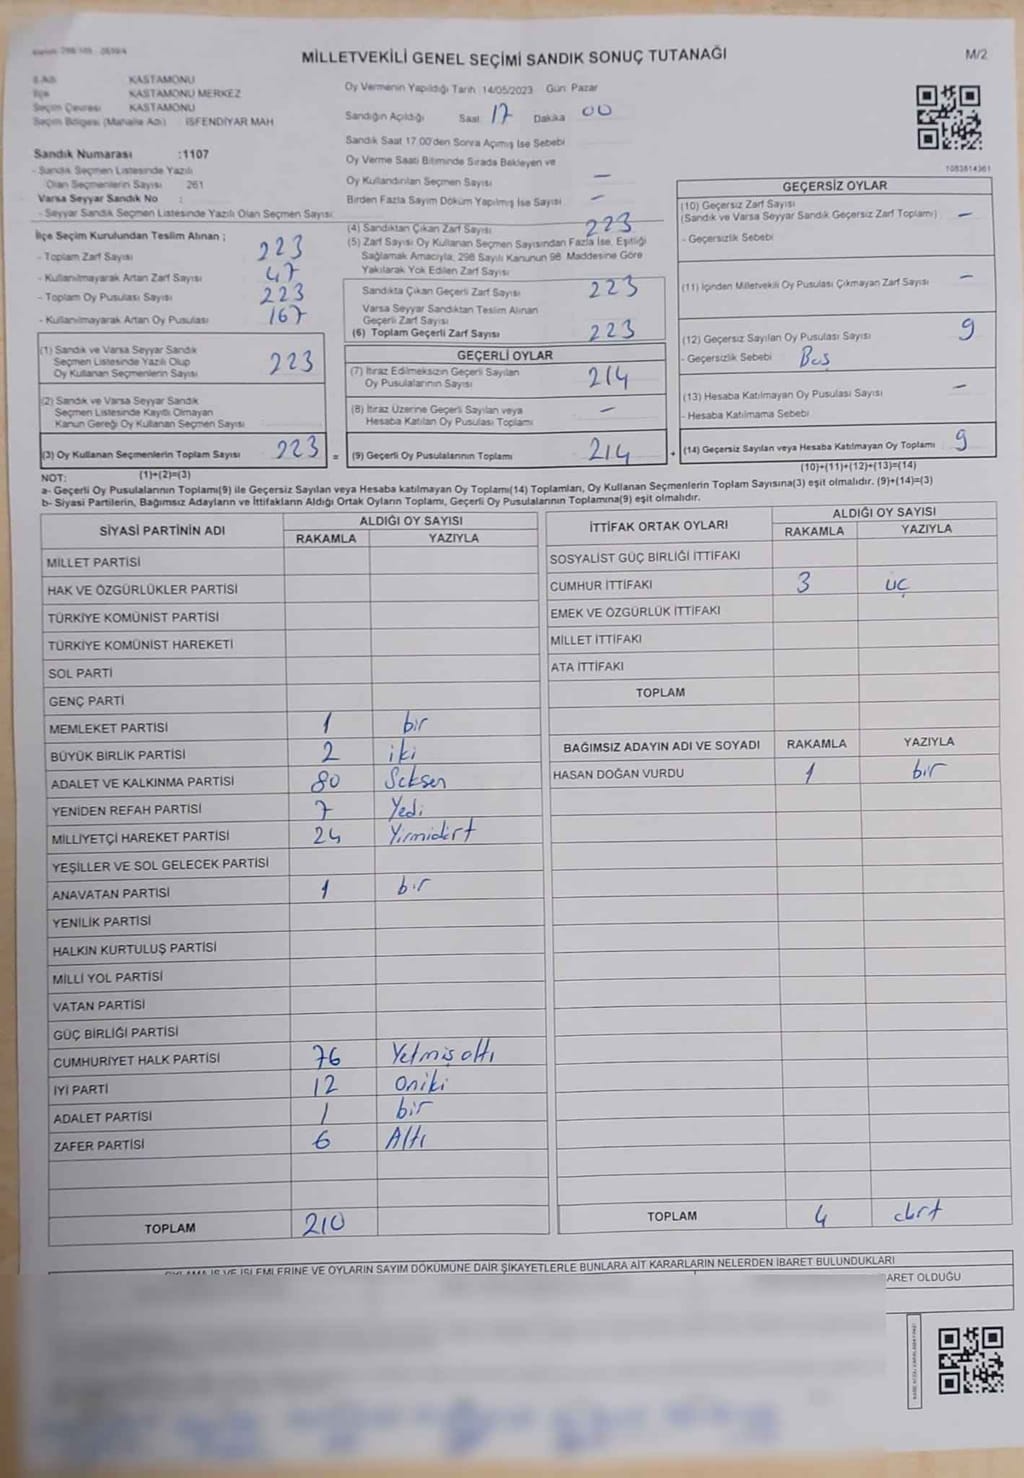 MİLLETVEKİLİ GENEL SEÇİMİ SANDIK SONUÇ TUTANAĞI
M/2
İl Adı KASTAMONU
İlçe KASTAMONU MERKEZ
Seçim Çevresi KASTAMONU
Seçim Bölgesi (Mahalle Adı) İSFENDİYAR MAH
Sandık Numarası :1107
- Sandık Seçmen Listesinde Yazılı
Olan Seçmenlerin Sayısı 261
Varsa Seyyar Sandık No :
- Seyyar Sandık Seçmen Listesinde Yazılı Olan Seçmen Sayısı
İlçe Seçim Kurulundan Teslim Alınan ;
- Toplam Zarf Sayısı 223
- Kullanılmayarak Artan Zarf Sayısı 47
- Toplam Oy Pusulası Sayısı 223
- Kullanılmayarak Artan Oy Pusulası 167
(1) Sandık ve Varsa Seyyar Sandık
Seçmen Listesinde Yazılı Olup
Oy Kullanan Seçmenlerin Sayısı 223
(2) Sandık ve Varsa Seyyar Sandık
Seçmen Listesinde Kayıtlı Olmayan
Kanun Gereği Oy Kullanan Seçmen Sayısı
(3) Oy Kullanan Seçmenlerin Toplam Sayısı 223 =
(1)+(2)=(3)
Oy Vermenin Yapıldığı Tarih :14/05/2023 Gün: Pazar
Sandığın Açıldığı Saat 17 Dakika 00
Sandık Saat 17.00'den Sonra Açımış İse Sebebi
Oy Verme Saati Bitiminde Sırada Bekleyen ve
Oy Kullandırılan Seçmen Sayısı —
Birden Fazla Sayım Döküm Yapılmış İse Sayısı —
(4) Sandıktan Çıkan Zarf Sayısı 223
(5) Zarf Sayısı Oy Kullanan Seçmen Sayısından Fazla İse, Eşitliği
Sağlamak Amacıyla, 298 Sayılı Kanunun 98. Maddesine Göre
Yakılarak Yok Edilen Zarf Sayısı
Sandıkta Çıkan Geçerli Zarf Sayısı 223
Varsa Seyyar Sandıktan Teslim Alınan
Geçerli Zarf Sayısı
(6) Toplam Geçerli Zarf Sayısı 223
GEÇERLİ OYLAR
(7) İtiraz Edilmeksizin Geçerli Sayılan
Oy Pusulalarının Sayısı 214
(8) İtiraz Üzerine Geçerli Sayılan veya
Hesaba Katılan Oy Pusulası Toplamı —
(9) Geçerli Oy Pusulalarının Toplamı 214 +
1083814361
GEÇERSİZ OYLAR
(10) Geçersiz Zarf Sayısı
(Sandık ve Varsa Seyyar Sandık Geçersiz Zarf Toplamı) —
- Geçersizlik Sebebi
(11) İçinden Milletvekili Oy Pusulası Çıkmayan Zarf Sayısı —
(12) Geçersiz Sayılan Oy Pusulası Sayısı 9
- Geçersizlik Sebebi Boş
(13) Hesaba Katılmayan Oy Pusulası Sayısı —
- Hesaba Katılmama Sebebi
(14) Geçersiz Sayılan veya Hesaba Katılmayan Oy Toplamı 9
(10)+(11)+(12)+(13)=(14)
NOT:
a- Geçerli Oy Pusulalarının Toplamı(9) ile Geçersiz Sayılan veya Hesaba Katılmayan Oy Toplamı(14) Toplamları, Oy Kullanan Seçmenlerin Toplam Sayısına(3) eşit olmalıdır. (9)+(14)=(3)
b- Siyasi Partilerin, Bağımsız Adayların ve İttifakların Aldığı Ortak Oyların Toplamı, Geçerli Oy Pusulalarının Toplamına(9) eşit olmalıdır.
SİYASİ PARTİNİN ADI ALDIĞI OY SAYISI
RAKAMLA YAZIYLA
MİLLET PARTİSİ
HAK VE ÖZGÜRLÜKLER PARTİSİ
TÜRKİYE KOMÜNİST PARTİSİ
TÜRKİYE KOMÜNİST HAREKETİ
SOL PARTİ
GENÇ PARTİ
MEMLEKET PARTİSİ 1 bir
BÜYÜK BİRLİK PARTİSİ 2 iki
ADALET VE KALKINMA PARTİSİ 80 Seksen
YENİDEN REFAH PARTİSİ 7 Yedi
MİLLİYETÇİ HAREKET PARTİSİ 24 Yirmidört
YEŞİLLER VE SOL GELECEK PARTİSİ
ANAVATAN PARTİSİ 1 bir
YENİLİK PARTİSİ
HALKIN KURTULUŞ PARTİSİ
MİLLİ YOL PARTİSİ
VATAN PARTİSİ
GÜÇ BİRLİĞİ PARTİSİ
CUMHURİYET HALK PARTİSİ 76 Yetmişaltı
İYİ PARTİ 12 Oniki
ADALET PARTİSİ 1 bir
ZAFER PARTİSİ 6 Altı
TOPLAM 210
İTTİFAK ORTAK OYLARI ALDIĞI OY SAYISI
RAKAMLA YAZIYLA
SOSYALİST GÜÇ BİRLİĞİ İTTİFAKI
CUMHUR İTTİFAKI 3 üç
EMEK VE ÖZGÜRLÜK İTTİFAKI
MİLLET İTTİFAKI
ATA İTTİFAKI
TOPLAM
BAĞIMSIZ ADAYIN ADI VE SOYADI RAKAMLA YAZIYLA
HASAN DOĞAN VURDU 1 bir
TOPLAM 4 dört
İŞ VE İŞLEMLERİNE VE OYLARIN SAYIM DÖKÜMÜNE DAİR ŞİKAYETLERLE BUNLARA AİT KARARLARIN NELERDEN İBARET BULUNDUKLARI
ARET OLDUĞU